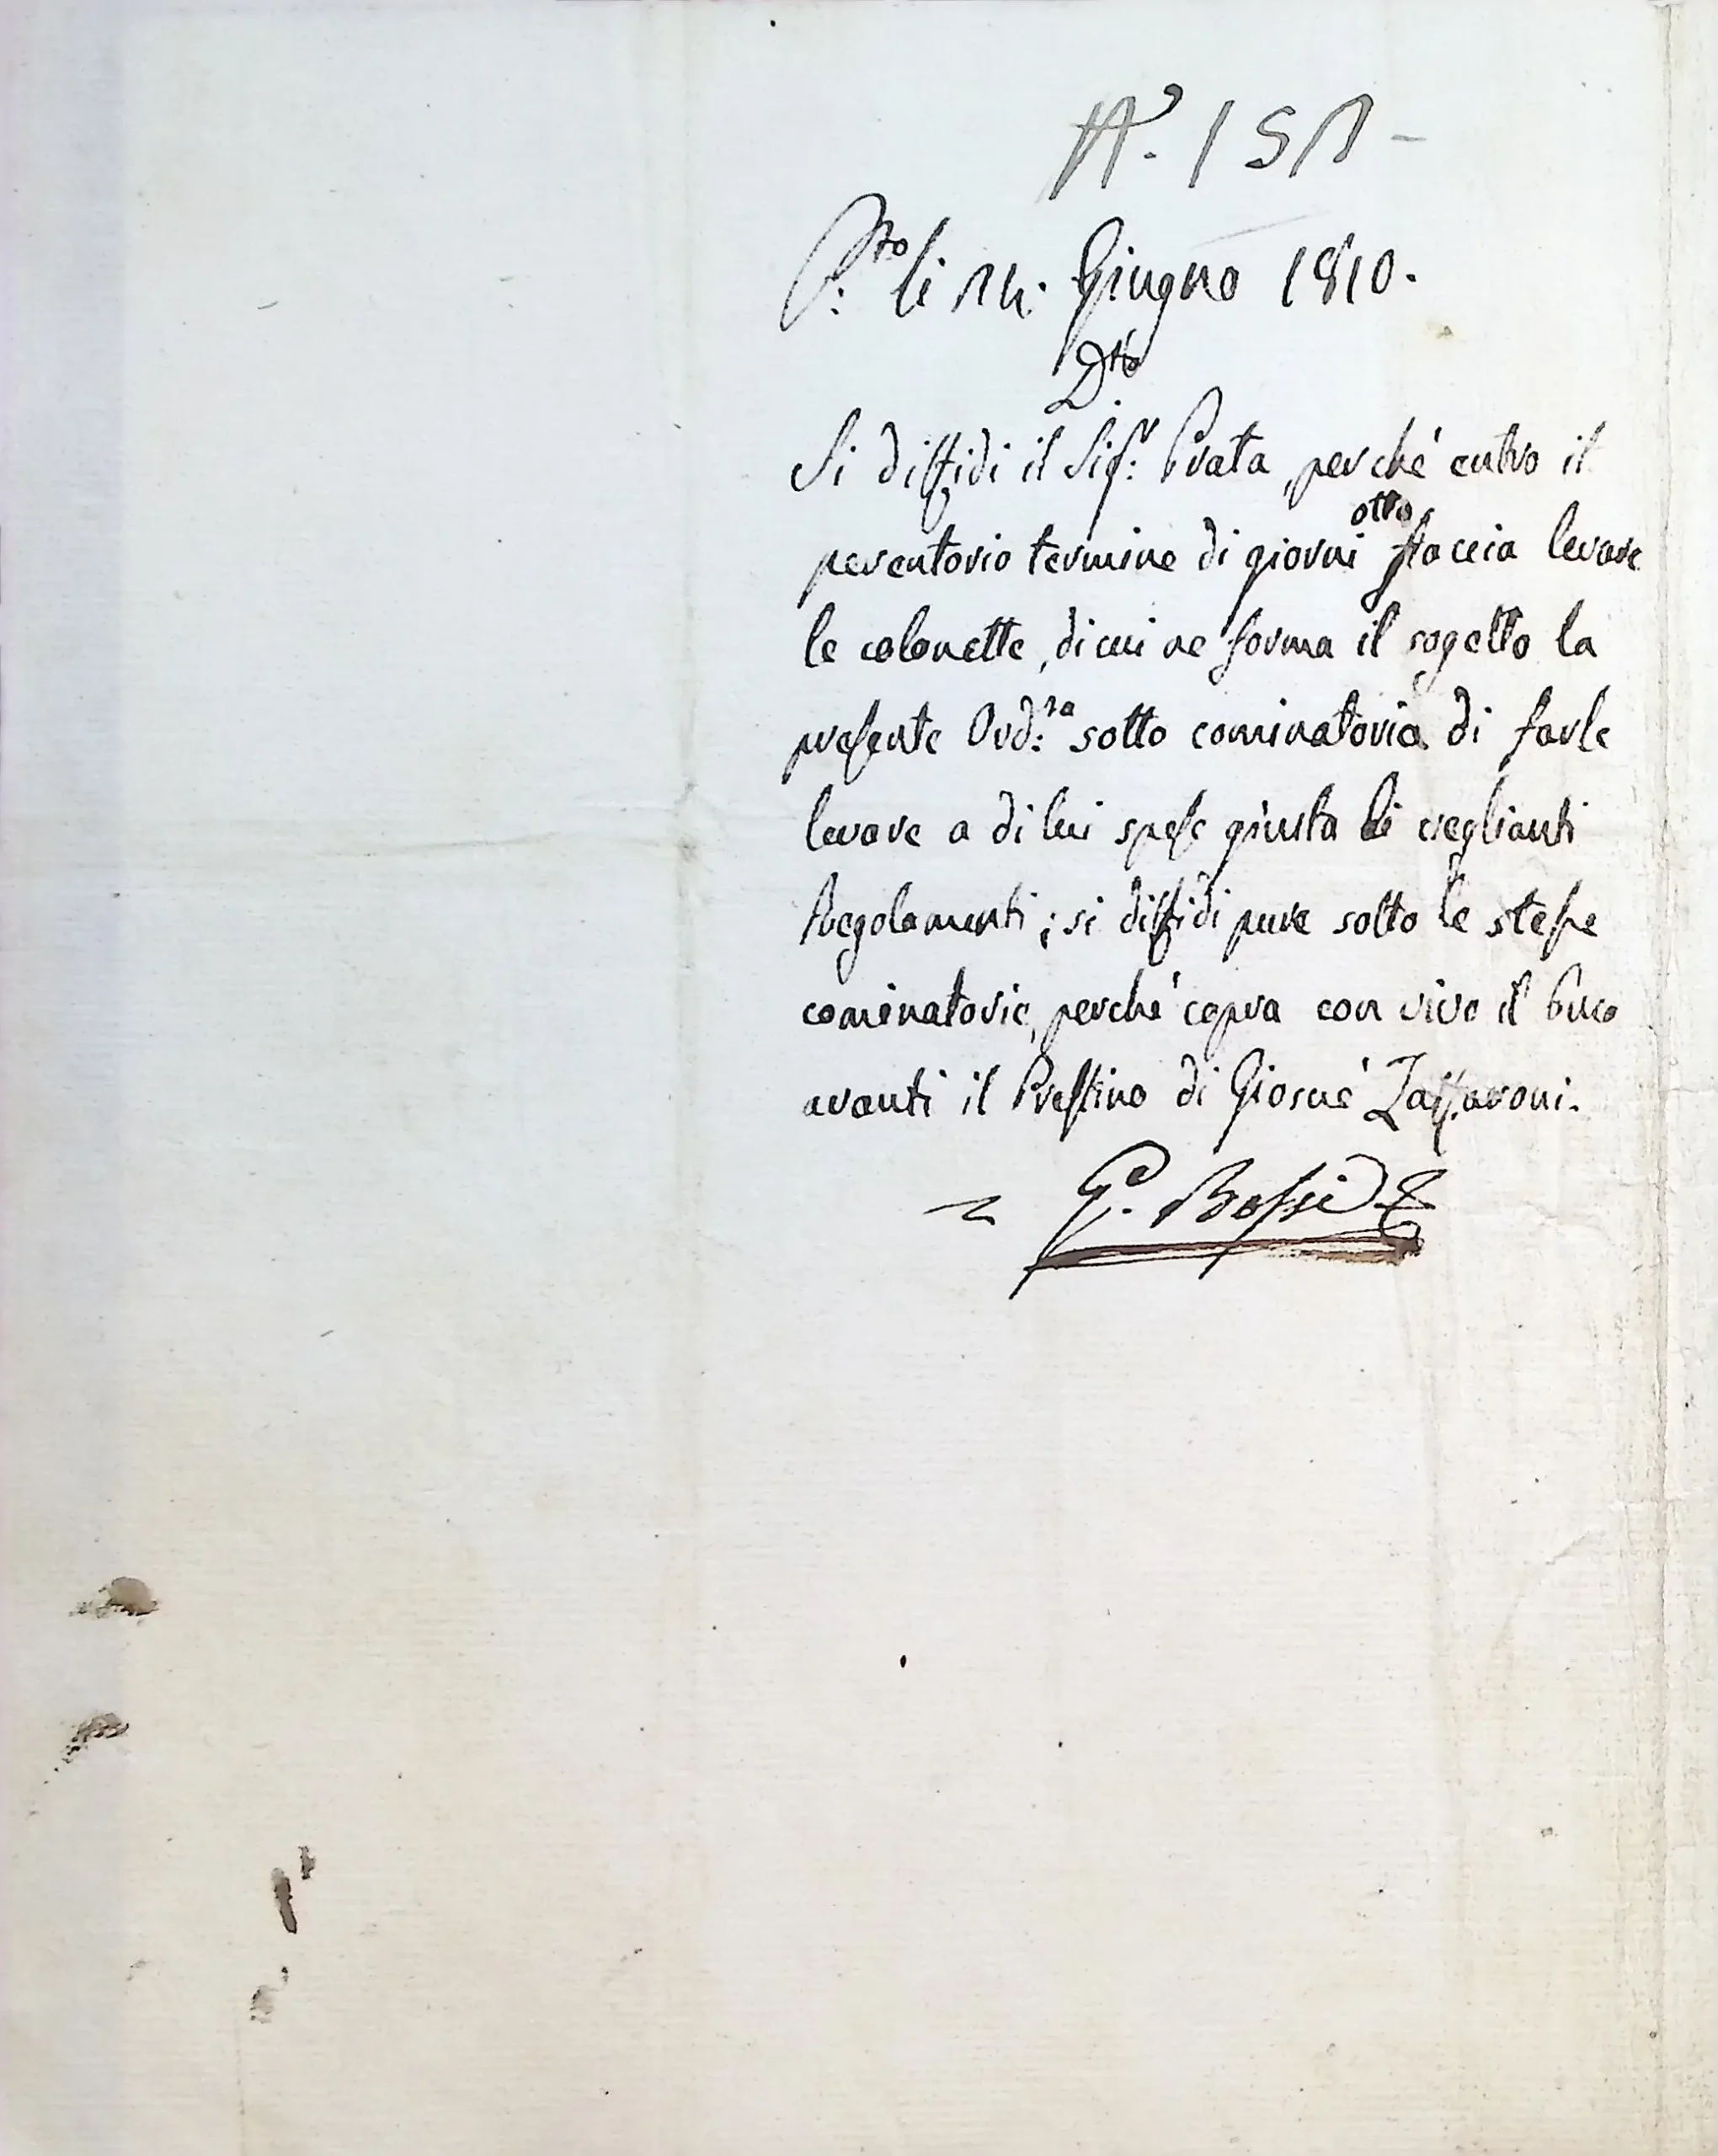 N.° 151 -
P.to li 14. Giugno 1810.
D.to
Si diffidi il Sig.r Prata, perchè entro il
perentorio termine di giorni otto faccia levare
le colonette, di cui ne forma il sogetto la
presente Ord.za sotto cominatoria di farle
levare a di lui spese giusta li veglianti
Regolamenti; si diffidi pure sotto le stesse
cominatorie, perchè copra con vivo il buco
avanti il Prestino di Giosuè Zaffaroni.
G. Bossi